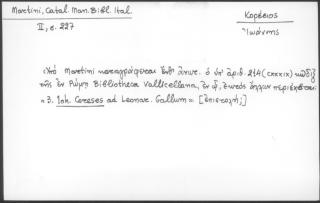 Martini, Catal. Man. Bibl. Ital.
II, σ. 227
Καρέσιος
Ἰωάννης
Ὑπὸ Martini καταγράφεται ἔνθ' ἀνωτ. ὁ ὑπ' ἀριθ. 214 (CXXXIX) κῶδιξ
τῆς ἐν Ρώμῃ Bibliotheca Vallicellana, ἐν ᾧ, ἐκτὸς ἄλλων περιέχεται:
« 3. Joh. Careses ad Leonar. Gallum» [ἐπιστολή;]